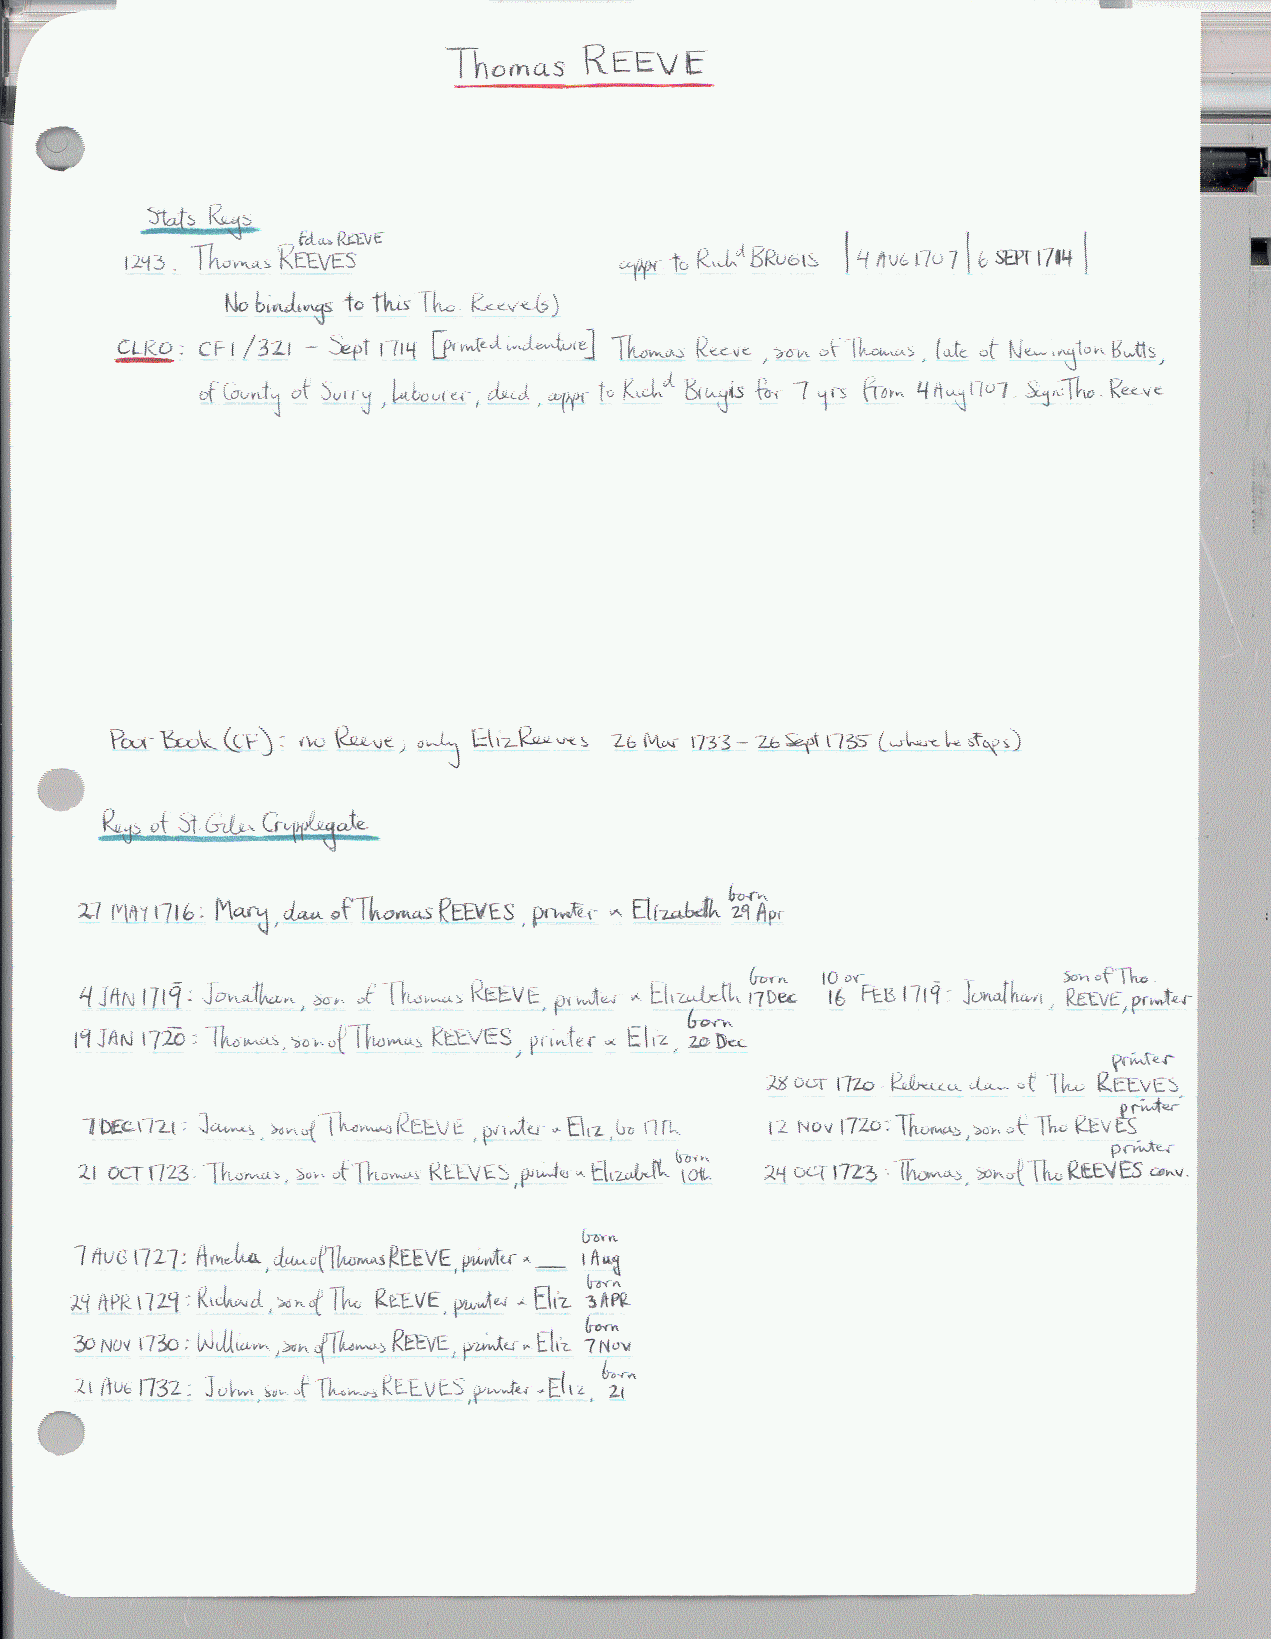 Thomas REEVE
Stats Regs
fd as REEVE
1293. Thomas REEVES appr to Rich^d BRUGIS | 4 AUG 1707 | 6 SEPT 1714 |
No bindings to this Tho. Reeve(s)
CLRO: CF1/321 - Sept 1714 [printed indenture] Thomas Reeve, son of Thomas, late of Newington Butts,
of County of Surry, labourer, decd, appr to Rich^d Brugis for 7 yrs from 4 Aug 1707. Sign: Tho. Reeve
Poor Book (CF): no Reeve; only Eliz Reeves 26 Mar 1733 - 26 Sept 1735 (where he stops)
Regs of St. Giles Cripplegate
27 MAY 1716: Mary, dau of Thomas REEVES, printer & Elizabeth born 29 Apr
4 JAN 1719: Jonathan, son of Thomas REEVE, printer & Elizabeth born 17 Dec 10 or 16 FEB 1719: Jonathan, son of Tho. REEVE, printer
19 JAN 1720: Thomas, son of Thomas REEVES, printer & Eliz, born 20 Dec
28 OCT 1720 Rebecca dau of Tho REEVES, printer
7 DEC 1721: James, son of Thomas REEVE, printer & Eliz, bo 17th 12 NOV 1720: Thomas, son of Tho REVES printer
21 OCT 1723: Thomas, son of Thomas REEVES, printer & Elizabeth born 10th 24 OCT 1723: Thomas, son of Tho REEVES printer conv.
7 AUG 1727: Amelia, dau of Thomas REEVE, printer & __ born 1 Aug
29 APR 1729: Richard, son of Tho REEVE, printer & Eliz born 3 APR
30 NOV 1730: William, son of Thomas REEVE, printer & Eliz born 7 Nov
21 AUG 1732: John, son of Thomas REEVES, printer & Eliz, born 21